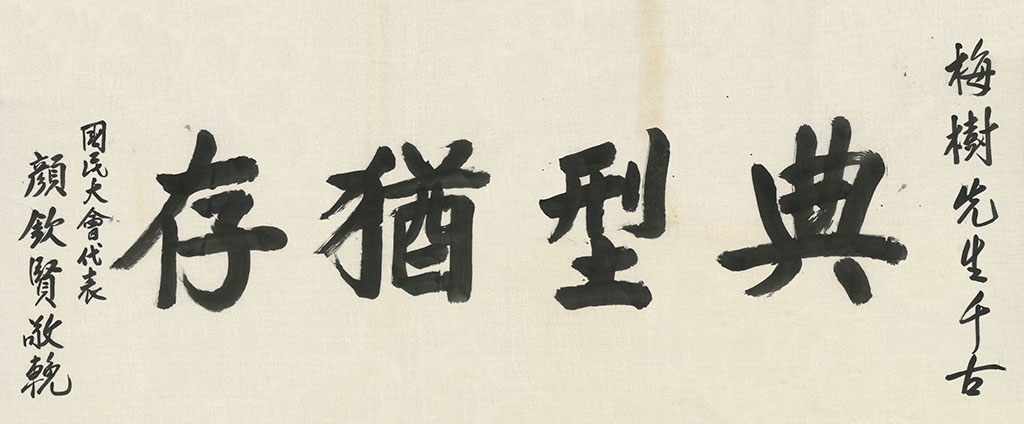 梅樹先生千古
典型猶存
國民大會代表
顏欽賢敬輓